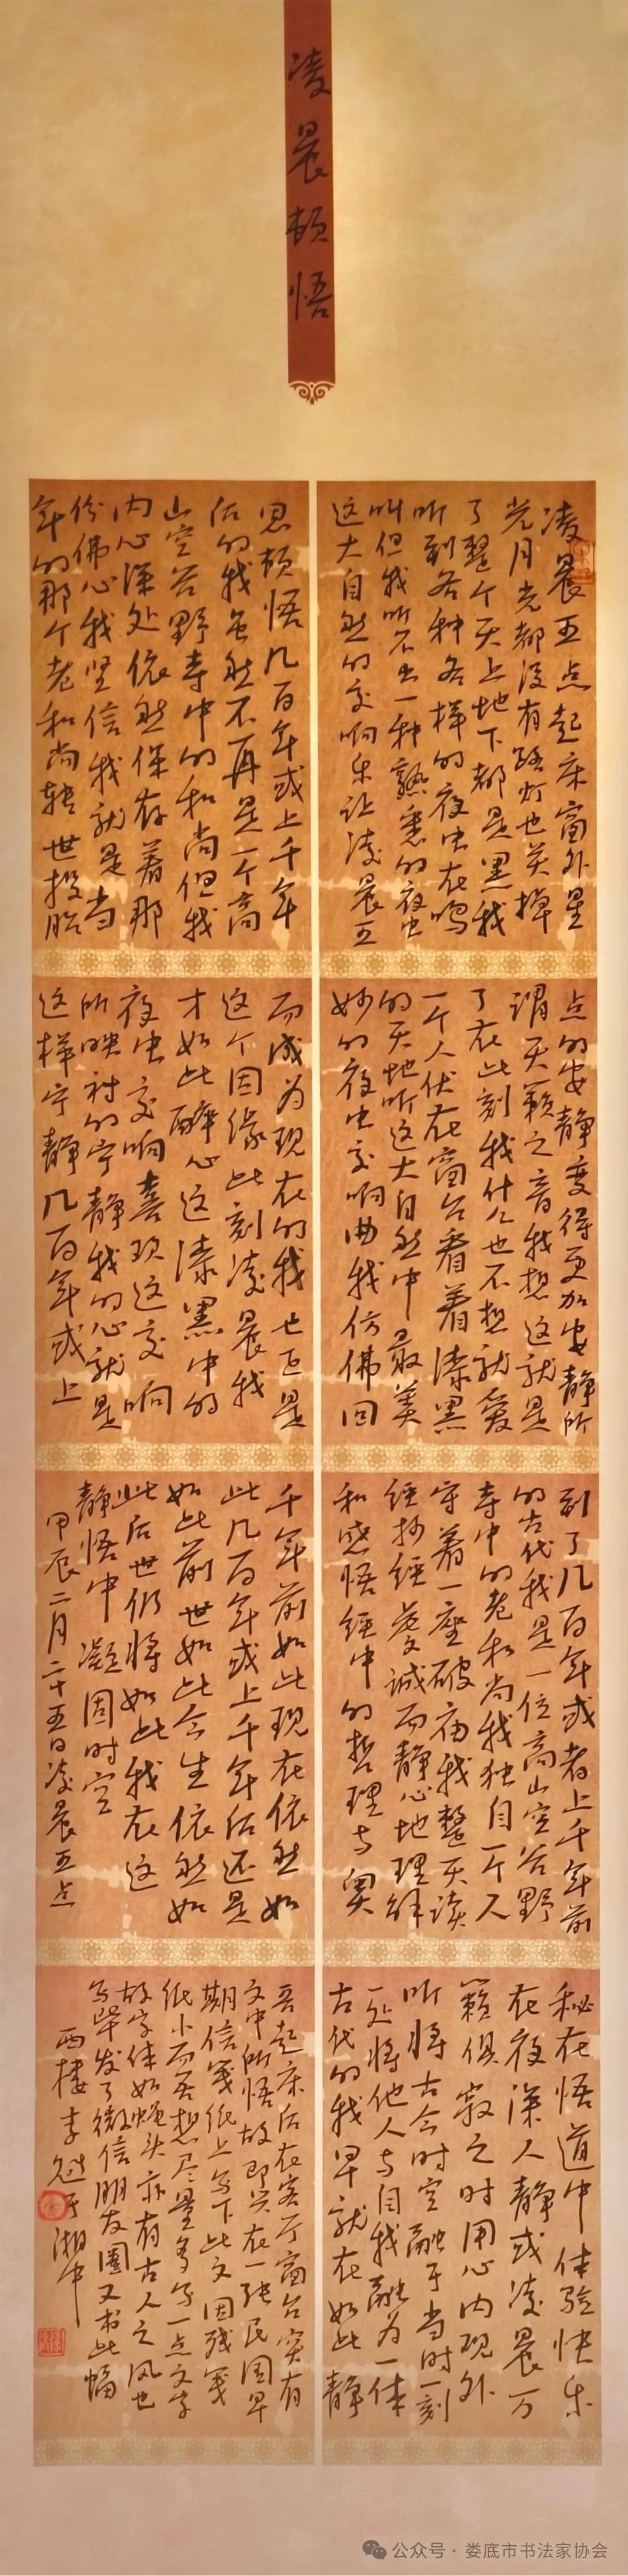 凌晨顿悟
凌晨五点起床窗外星
光月光都没有路灯也关掉
了整个天上地下都是黑我
听到各种各样的夜虫在鸣
叫但我听不出一种熟悉的夜虫
这大自然的交响乐让凌晨五
点的安静变得更加安静所
谓天籁之音我想这就是
了在此刻我什么也不想就爱
一个人伏在窗台看着漆黑
的天地听这大自然中最美
妙的夜虫交响曲我仿佛回
到了几百年或者上千年前
的古代我是一位高山空谷野
寺中的老和尚我独自一个人
守着一座破庙我整天读
经抄经虔诚而静心地理解
和感悟经中的哲理与奥
秘在悟道中体验快乐
在夜深人静或凌晨万
籁俱寂之时用心内观外
听将古今时空融于当时一刻
一处将他人与自我融为一体
古代的我早就在如此静
思顿悟几百年或上千年
后的我虽然不再是一个高
山空谷野寺中的和尚但我
内心深处依然保存着那
份佛心我坚信我就是当
年的那个老和尚转世投胎
而成为现在的我也正是
这个因缘此刻凌晨我
才如此醉心这漆黑中的
夜虫交响喜欢这交响
所映衬的宁静我的心就是
这样宁静几百年或上
千年前如此现在依然如
此几百年或上千年后还是
如此前世如此今生依然如
此后世仍将如此我在这
静悟中凝固时空
甲辰二月二十五日凌晨五点
吾起床后在客厅窗台实有
文中所悟故即兴在一张民国早
期信笺纸上写下此文因残笺
纸小而吾想尽量多写一点文字
故字体如蝇头亦有古人之风也
写毕发了微信朋友圈又书此幅
西楼李 于湘中
公众号·娄底市书法家协会